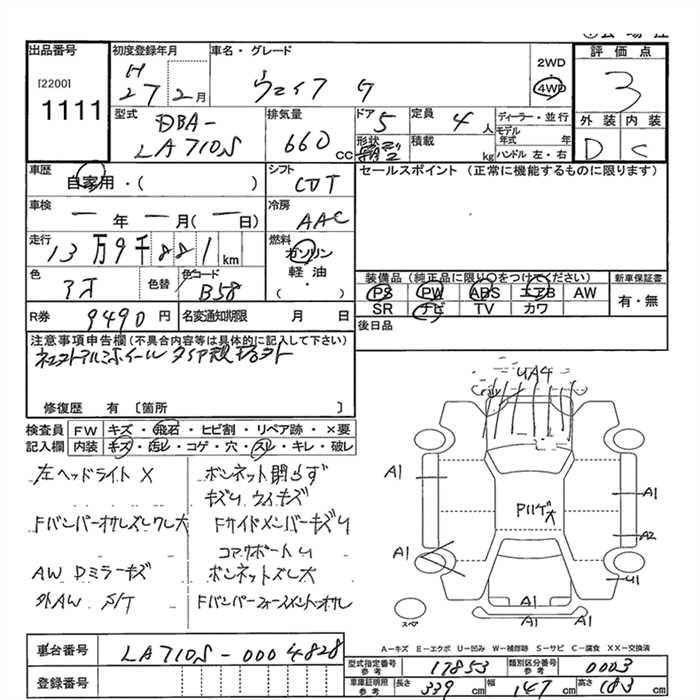 出品番号
[2200]
1111
初度登録年月
H 27 2月
車名・グレード
ウェイク G
2WD
4WD
評価点
3
外装 内装
D C
型式
DBA-
LA710S
排気量
660 cc
ドア 5
形状
定員 4人
積載 kg
ディーラー・並行
モデル年式 年
ハンドル 左・右
車歴
自家用・( )
シフト
CDT
セールスポイント (正常に機能するものに限ります)
車検
一年一月(一日)
冷房
AAC
走行
13万9千881km
燃料
ガソリン
軽油・
( )
色
色替
色コード
B58
装備品(純正品に限り○をつけてください)
PS PW ABS エアB AW
SR ナビ TV カワ
新車保証書
有・無
R券 9490円
名変通知期限 月 日
後日品
注意事項申告欄(不具合内容等は具体的に記入して下さい)
修復歴 有 〔箇所 〕
検査員 FW キズ・飛石・ヒビ割・リペア跡・×要
記入欄 内装 キズ・汚レ・コゲ・穴・スレ・キレ・破レ
左ヘッドライト X
ボンネット閉らず
Fバンパーオサレズレワレ大
FサイドメンバーキズU
コアサポートU
AW Dミラーキズ
ボンネットズレ大
外AW S/T
UA4
A1
A1
A1
A2
A1
U1
スペア
A-キズ E-エクボ U-凹み W-補修跡 S-サビ C-腐食 XX-交換済
車台番号 LA710S-0004828
登録番号
型式指定番号参考 17853
類別区分番号参考 0003
車庫証明用参考 長さ 339cm 幅 147cm 高さ 183cm